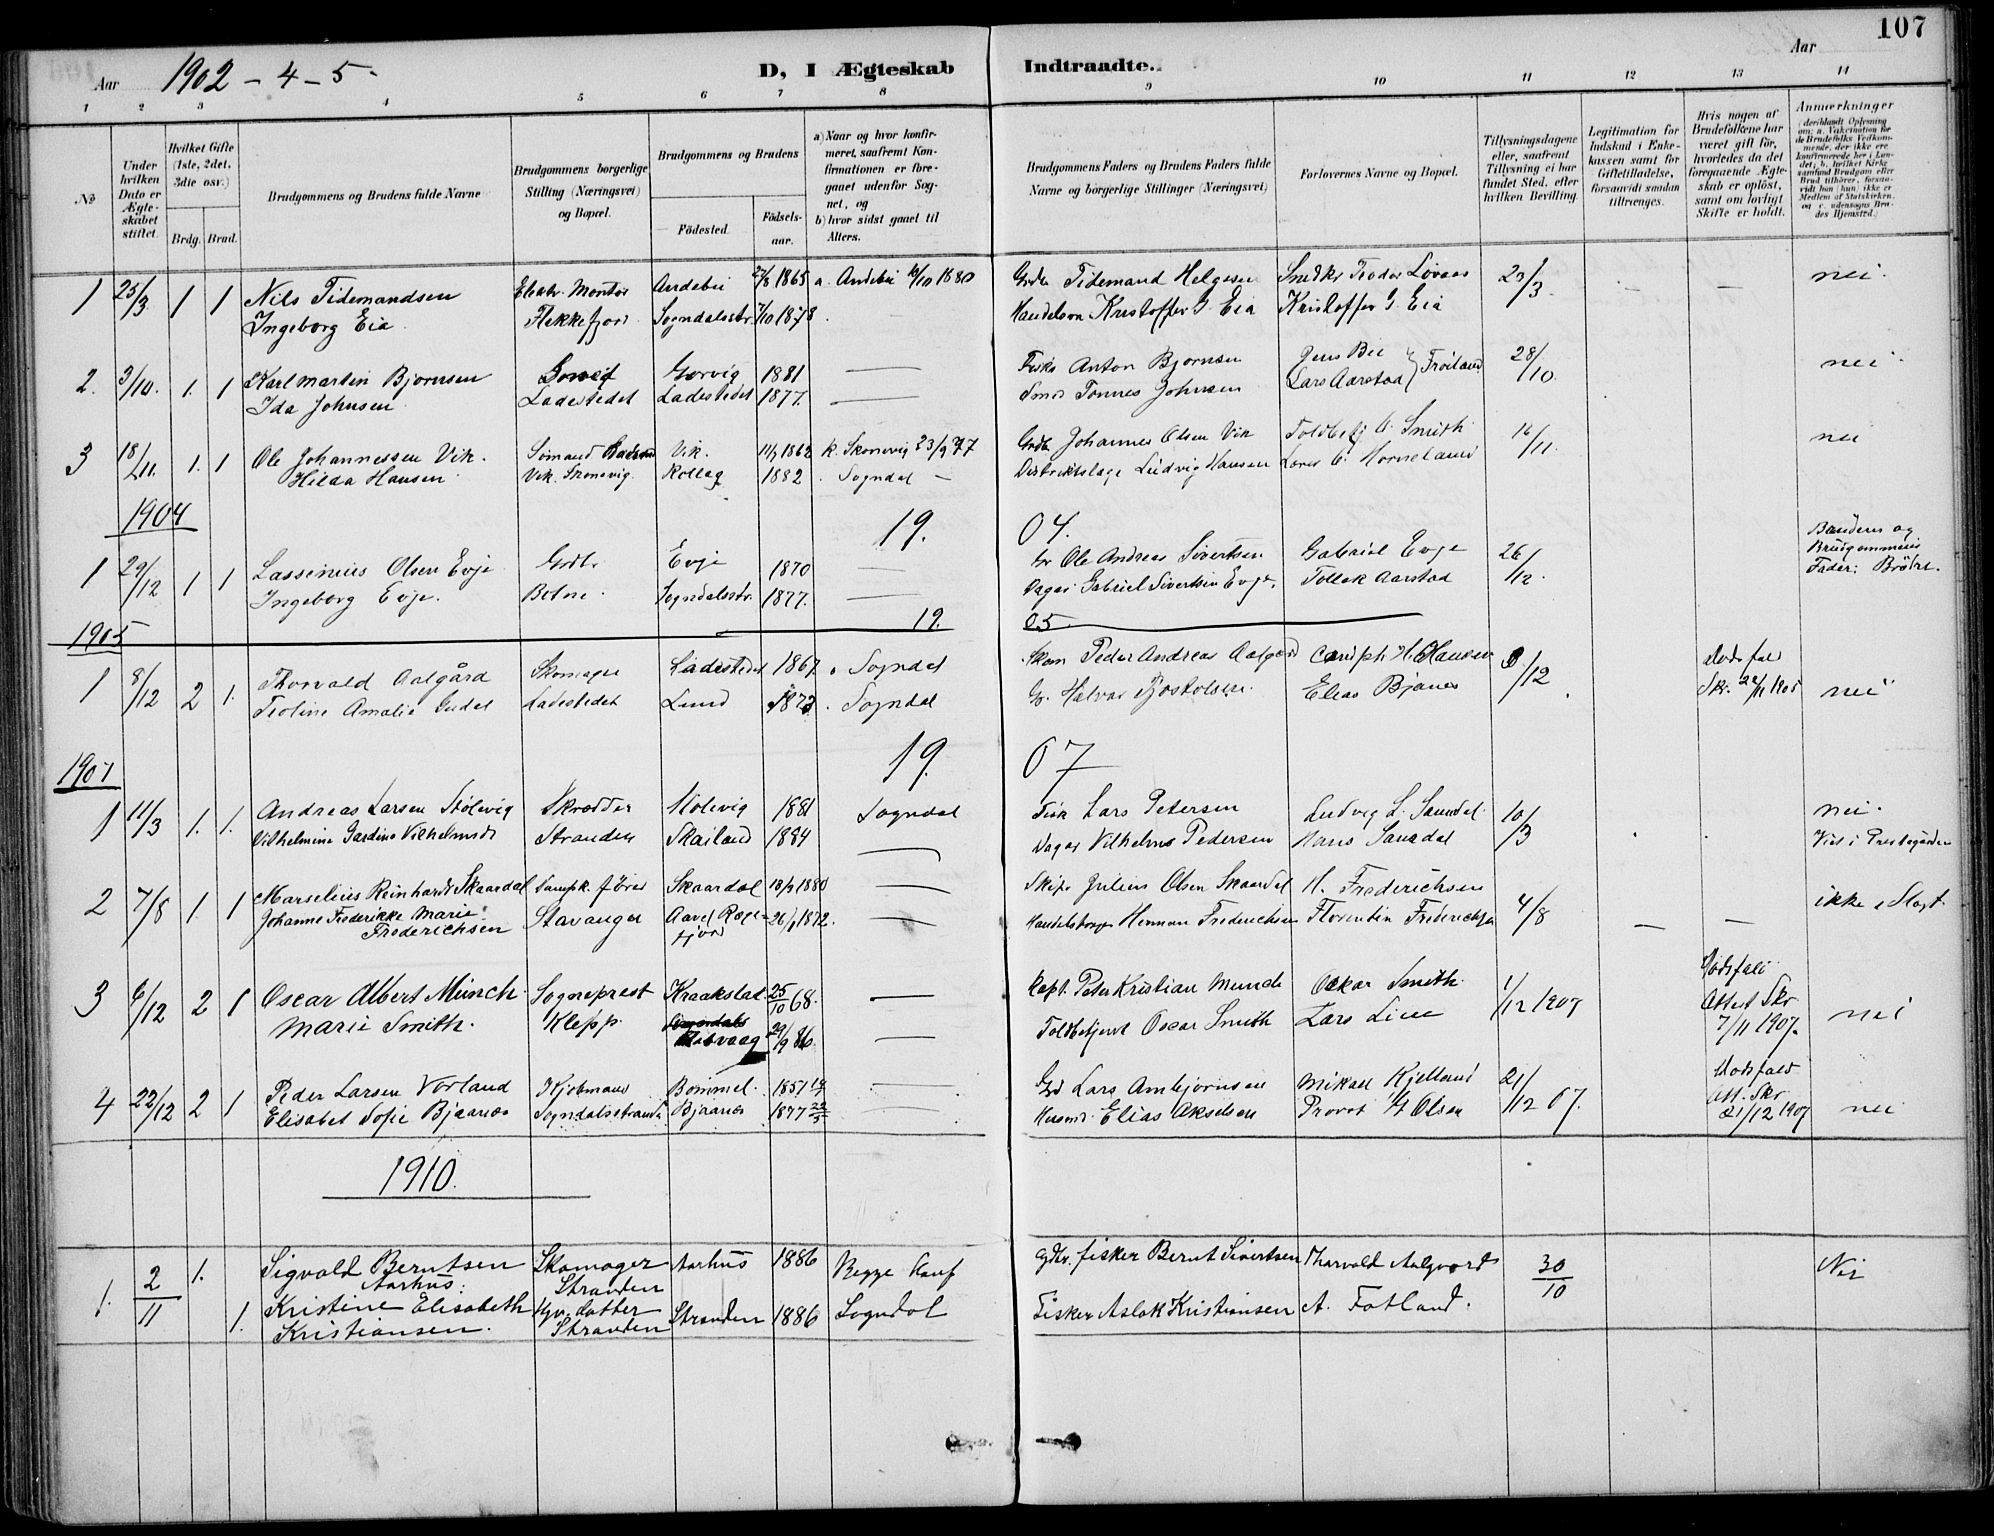 107
Aar 1902 - 4 - 5 D, I Ægteskab Indtraadte. Aar
1 2 3 4 5 6 7 8 9 10 11 12 13 14
No
Under hvilken Dato er Ægteskabet stiftet.
Hvilket Gifte (1ste, 2det, 3die osv.)
Brdg. Brud.
Brudgommens og Brudens fulde Navne
Brudgommens borgerlige Stilling (Næringsvei) og Bopæl.
Brudgommens og Brudens
Födested. Födselsaar.
a) Naar og hvor konfirmeret, saafremt Konfirmationen er foregaaet udenfor Sognet, og
b) hvor sidst gaaet til Alters.
Brudgommens Faders og Brudens Faders fulde Navne og borgerlige Stillinger (Næringsvei)
Forlovernes Navne og Bopæl.
Tillysningsdagene eller, saafremt Tillysning ei har fundet Sted, efter hvilken Bevilling.
Legitimation for Indskud i Enkekassen samt for Giftetilladelse, forsaavidt saadan tiltrænges.
Hvis nogen af Brudefolkene har været gift før, hvorledes da det foregaaende Ægteskab er oplöst, samt om lovligt Skifte er holdt.
Anmærkninger (deriblandt Oplysning om: a. Vakcination for de Brudefolks Vedkommende, der ikke ere konfirmerede her i Landet; b. hvilket Kirkesamfund Brudgom eller Brud tilhörer, forsaavidt han (hun) ikke er Medlem af Statskirken, og c. udensogns Brudes Hjemsted.)
1 25/3 1 1 Nils Tidemandsen Elektr. Montör Andebu 27/8 1865 a. Andebu 10/10 1880 Grdbr Tidemand Helgesen Smdkr Teodor Lovaas 23/3 — — nei.
Ingeborg Eia Flekkefjord Sogndalsstr. 7/10 1878 Handelsm Kristoffer G. Eia Kristoffer G. Eia
2. 3/10. 1. 1 Karl Martin Bjornsen Gorvig 1881 — Fisk Anton Bjornsen Jens Bie 28/10. nei
Ida Johnsen Ladestedet Ladestedet 1877. — Smed Tonnes Johnsen Lars Aarstad } Froiland
3 18/11. 1. 1 Ole Johannessen Vik. Sömand Vik. 11/9 1862 k. Skonevig 23/9 77 Grdbr Johannes Olsen Vik Toldbetj O. Smith 16/11. nei
Hilda Hansen Vik. Skonevig. Rollag 1882 . Sogndal — Distriktslæge Ludvig Hansen Lars O. Horneland
1904 19. 04.
1 29/12 1 1 Lassenius Olsen Evje Grdbr Evje 1870 — Gr Ole Andreas Sivertsen Gabriel Evje 26/12. Brudens og Brudgommens Fader: Brödre.
Ingeborg Evje. Botne. Sogndalsstr. 1877. — Gabriel Sivertsen Evje. Tollak Aarstad
1905 19. 05.
1 8/12 2 1. Thorvald Aalgård Skomager Ladestedet 1867. . Sogndal Skom Peder Andreas Aalgård H. Hansen 3/12 Dödsfald nei
Teoline Amalie Gudal Ladestedet Lund 1873 . Sogndal Gr. Halvar Elias Bjanes Skr. 22/11 1905
1907 19. 07
1 11/3 1. 1. Andreas Larsen Stölevig Skrædder Stölevig 1881 Sogndal Fisk Lars Petersen Ludvig L. Sandal. 10/3 nei.
Vilhelmine Gardine Vilhelmsdt Stranden Skailand 1884 — Dagar Vilhelms Pedersen Hans Sandal Viet i Prestegården
2 7/8 1. 1 Marselius Reinhardt Skaardal Dampsk. förer Skaardal 18/9 1880 — Skipr Julius Olsen Skaardal H. Frederichsen 4/8 — — ikke i Slægt.
Johanne Frederikke Marie Frederichsen Stavanger Aavel Rægefjord 26/1 1872. — Handelsborger Herman Frederichsen Florentin Frederichsen
3 6/12 2 1 Oscar Albert Münch Sogneprest Kraakstad 25/10 68. — Capt. Peter Kristian Munch Oskar Smith 1/12 1907 Dödsfald nei
Marie Smith. Klepp. 29/9 86. — Toldbetjent Oscar Smith Lars Lien Attest Skr 7/11 1907.
4 22/12 2 1 Peder Larsen Vorland Kjöbmand Bommel. 1851 — Grd Lars Ambjornsen Mikael Kjelland 21/12 07. Dödsfald
Elisabet Sofie Bjaanes Sogndalsstrand Bjaanes 1877 — Husmd. Elias Akselsen Provst H Olsen Att. Skr 21/12 1907 nei
1910.
1. 2/11 1. Sigvald Berntsen Aarhus. Skomager Stranden Aarhus 1886 Begge Konf Gdbr. fisker Bernt Sivertsen Tharvald Aalgaard 30/10 Nei
1. Kristine Elisabeth Kristiansen. Stranden Stranden 1886 Sogndal Fisker Aslak Kristiansen A. Fotland.